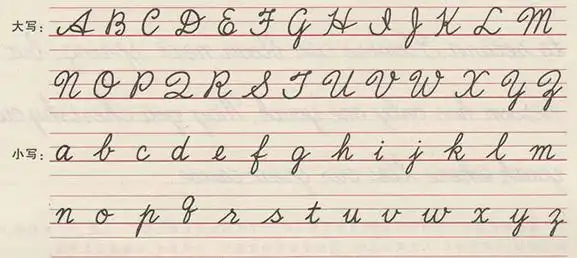 大写: A B C D E F G H I J K L M
N O P Q R S T U V W X Y Z
小写: a b c d e f g h i j k l m
n o p q r s t u v w x y z